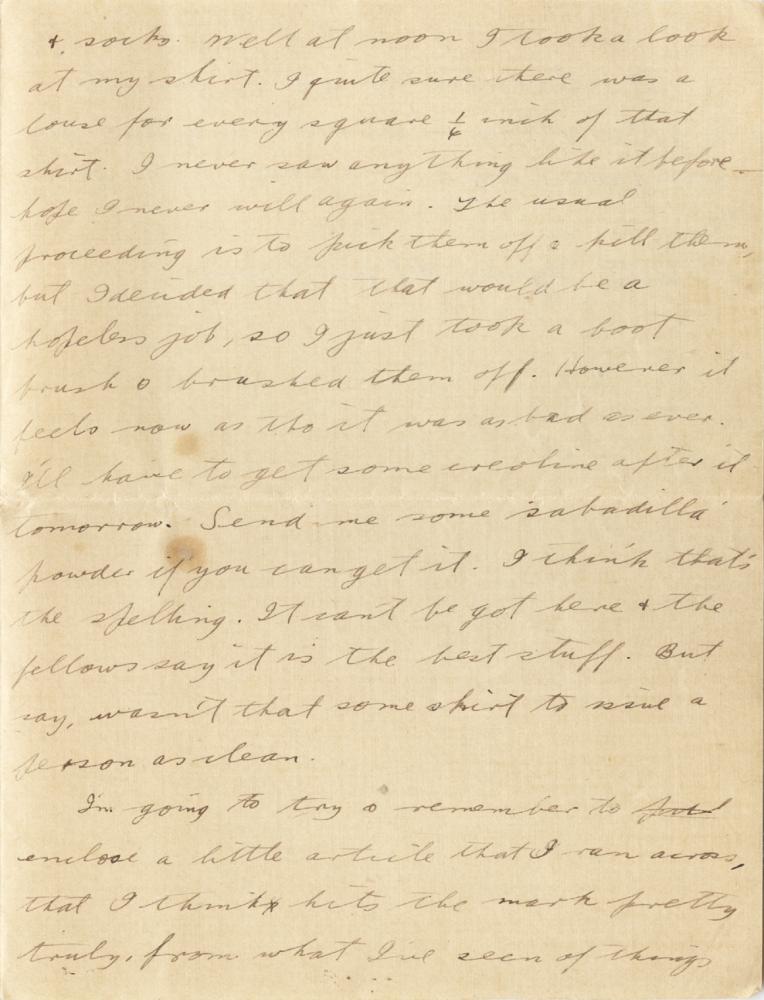 + socks. Well at noon I took a look
at my shirt. I quite sure there was a
louse for every square 1/4 inch of that
shirt. I never saw anything like it before –
hope I never will again. The usual
proceeding is to pick them off & kill them,
but I decided that that would be a
hopeless job, so I just took a boot
brush & brushed them off. However it
feels now as tho it was as bad as ever.
I'll have to get some creoline after it
tomorrow. Send me some sabadilla
powder if you can get it. I think that's
the spelling. It can't be got here + the
fellows say it is the best stuff. But
say, wasn't that some shirt to issue a
person as clean.
I'm going to try & remember to
enclose a little article that I ran across,
that I think hits the mark pretty
truly, from what I've seen of things